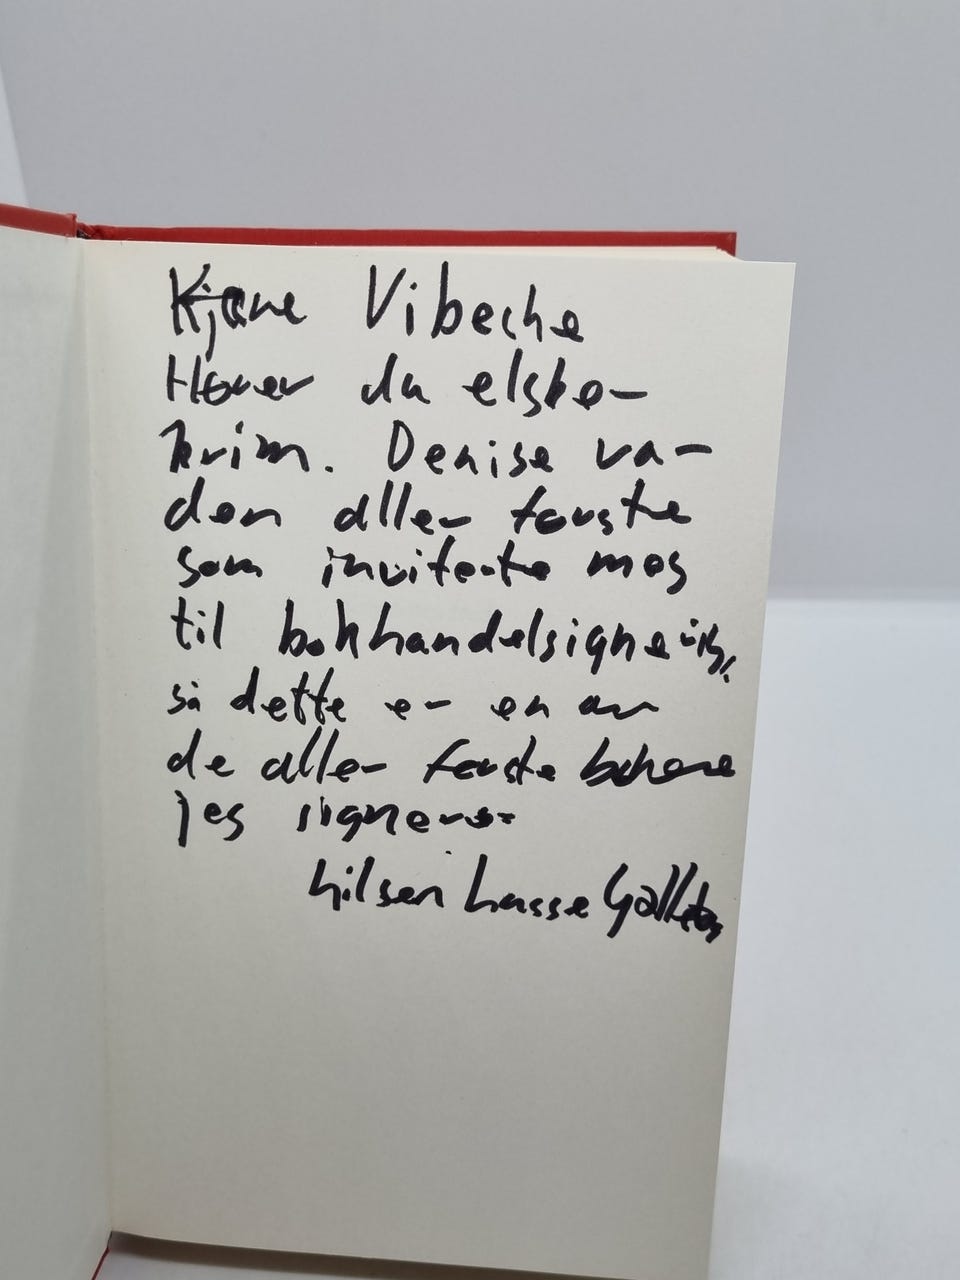 Kjære Vibeche
Hører du elsker
krim. Denise var
den aller første
som inviterte meg
til bokhandelsignering,
så dette er en av
de aller første bøkene
jeg signerer
Hilsen Lasse Gallefoss